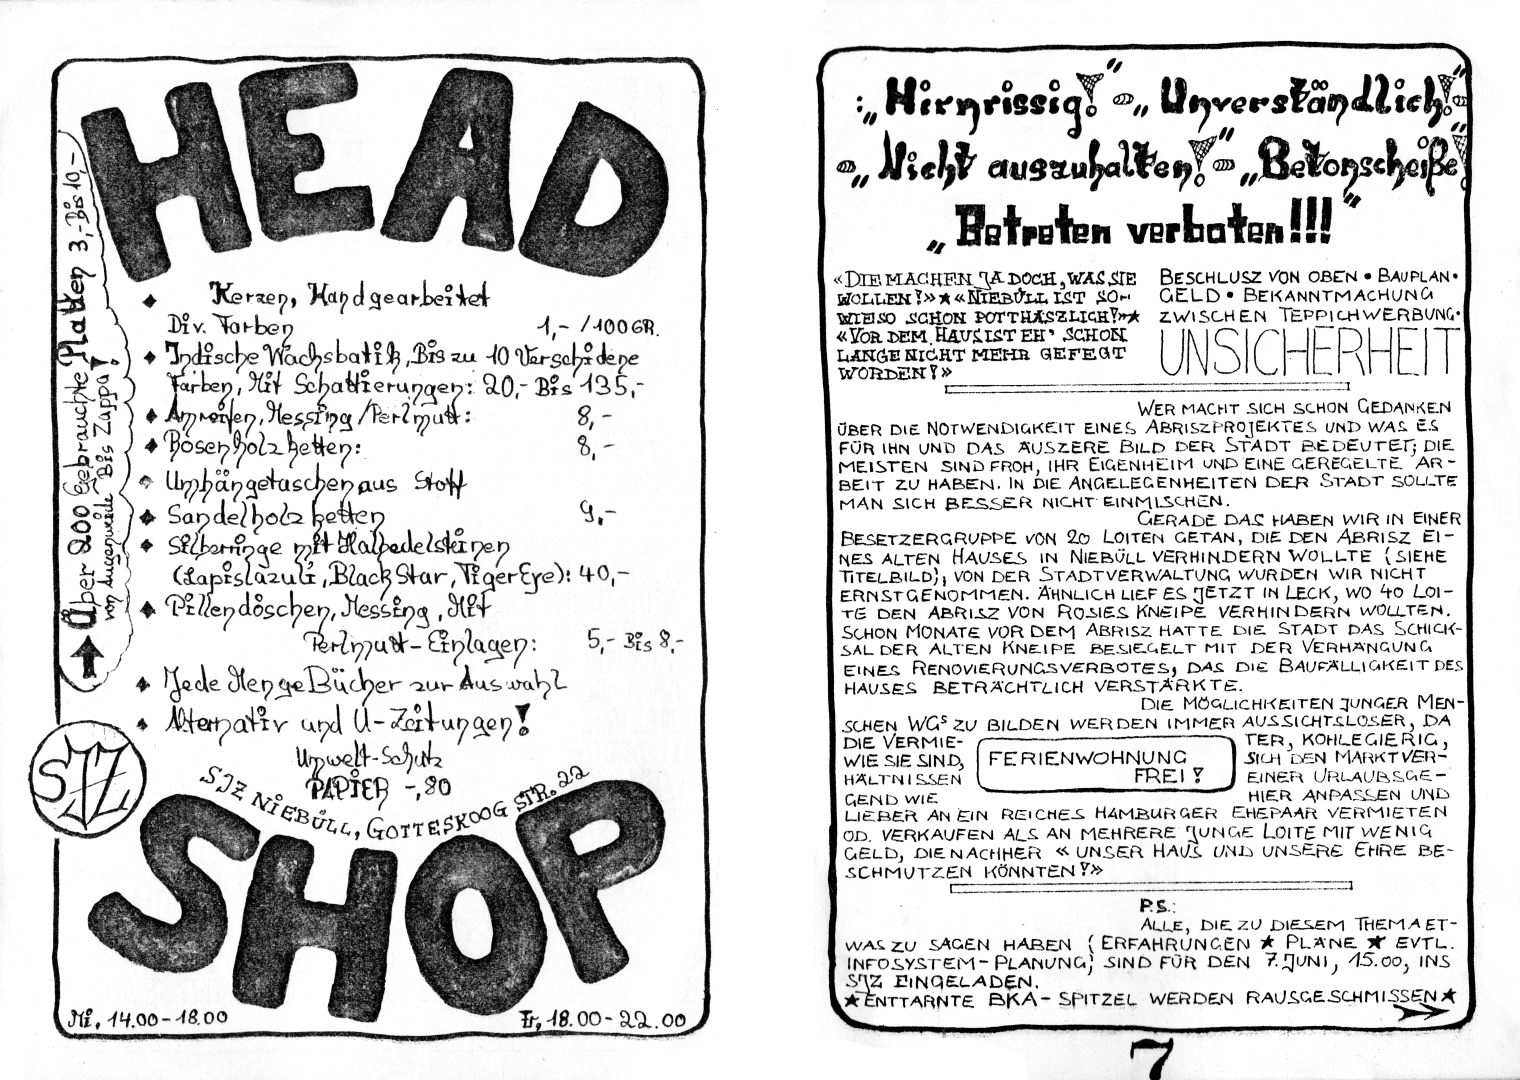 HEAD
Über 200 Gebrauchte Platten 3,- Bis 10,-
von Augenweide Bis Zappa!
Kerzen, Handgearbeitet
Div. Farben 1,- /100GR.
Indische Wachsbatik, Bis zu 10 Verschidene
Farben, Mit Schattierungen: 20,- Bis 135,-
Amreifen, Messing/Perlmutt: 8,-
Rosenholzketten: 8,-
Umhängetaschen aus Stoff
Sandelholzketten 9,-
Silberringe mit Halbedelsteinen
(Lapislazuli, Black Star, Tiger Eye): 40,-
Pillendöschen, Messing, Mit
Perlmutt-Einlagen: 5,- Bis 8,-
Jede Menge Bücher zur Auswahl
Alternativ und U-Zeitungen!
Umwelt-Schutz
PAPIER -,80
SJZ
SJZ NIEBÜLL, GOTTESKOOG STR. 22
SHOP
Mi, 14.00-18.00 Fr, 18.00-22.00
:„Hirnrissig!" „Unverständlich!"
„Nicht auszuhalten!" „Betonscheiße!"
„Betreten verboten!!!"
«DIE MACHEN JA DOCH, WAS SIE
WOLLEN!»★«NIEBÜLL IST SO-
WIESO SCHON POTTHÄSZLICH!»★
«VOR DEM HAUS IST EH' SCHON
LANGE NICHT MEHR GEFEGT
WORDEN!»
BESCHLUSZ VON OBEN • BAUPLAN •
GELD • BEKANNTMACHUNG
ZWISCHEN TEPPICHWERBUNG •
UNSICHERHEIT
WER MACHT SICH SCHON GEDANKEN
ÜBER DIE NOTWENDIGKEIT EINES ABRISZPROJEKTES UND WAS ES
FÜR IHN UND DAS ÄUSZERE BILD DER STADT BEDEUTET; DIE
MEISTEN SIND FROH, IHR EIGENHEIM UND EINE GEREGELTE AR-
BEIT ZU HABEN. IN DIE ANGELEGENHEITEN DER STADT SOLLTE
MAN SICH BESSER NICHT EINMISCHEN.
GERADE DAS HABEN WIR IN EINER
BESETZERGRUPPE VON 20 LOITEN GETAN, DIE DEN ABRISZ EI-
NES ALTEN HAUSES IN NIEBÜLL VERHINDERN WOLLTE (SIEHE
TITELBILD), VON DER STADTVERWALTUNG WURDEN WIR NICHT
ERNSTGENOMMEN. ÄHNLICH LIEF ES JETZT IN LECK, WO 40 LOI-
TE DEN ABRISZ VON ROSIES KNEIPE VERHINDERN WOLLTEN.
SCHON MONATE VOR DEM ABRISZ HATTE DIE STADT DAS SCHICK-
SAL DER ALTEN KNEIPE BESIEGELT MIT DER VERHÄNGUNG
EINES RENOVIERUNGSVERBOTES, DAS DIE BAUFÄLLIGKEIT DES
HAUSES BETRÄCHTLICH VERSTÄRKTE.
DIE MÖGLICHKEITEN JUNGER MEN-
SCHEN WGS ZU BILDEN WERDEN IMMER AUSSICHTSLOSER, DA
DIE VERMIE- TER, KOHLEGIERIG,
WIE SIE SIND, SICH DEN MARKTVER-
HÄLTNISSEN EINER URLAUBSGE-
GEND WIE HIER ANPASSEN UND
FERIENWOHNUNG
FREI!
LIEBER AN EIN REICHES HAMBURGER EHEPAAR VERMIETEN
OD. VERKAUFEN ALS AN MEHRERE JUNGE LOITE MIT WENIG
GELD, DIE NACHHER «UNSER HAUS UND UNSERE EHRE BE-
SCHMUTZEN KÖNNTEN!»
P.S.:
ALLE, DIE ZU DIESEM THEMA ET-
WAS ZU SAGEN HABEN (ERFAHRUNGEN ★ PLÄNE ★ EVTL.
INFOSYSTEM-PLANUNG) SIND FÜR DEN 7. JUNI, 15.00, INS
SJZ EINGELADEN.
★ENTTARNTE BKA-SPITZEL WERDEN RAUSGESCHMISSEN★
7